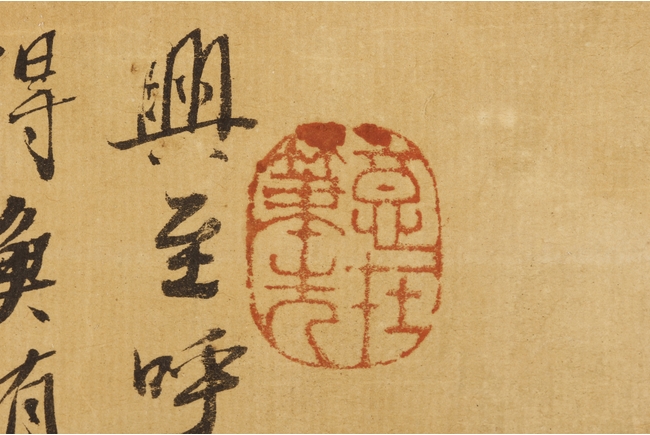 意在
筆先
興至呼
得 有